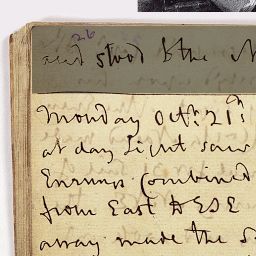 26
and stood to the N
Monday Octr 21st
at day light saw
Enemys Combined
from East to ESE
away made the Si